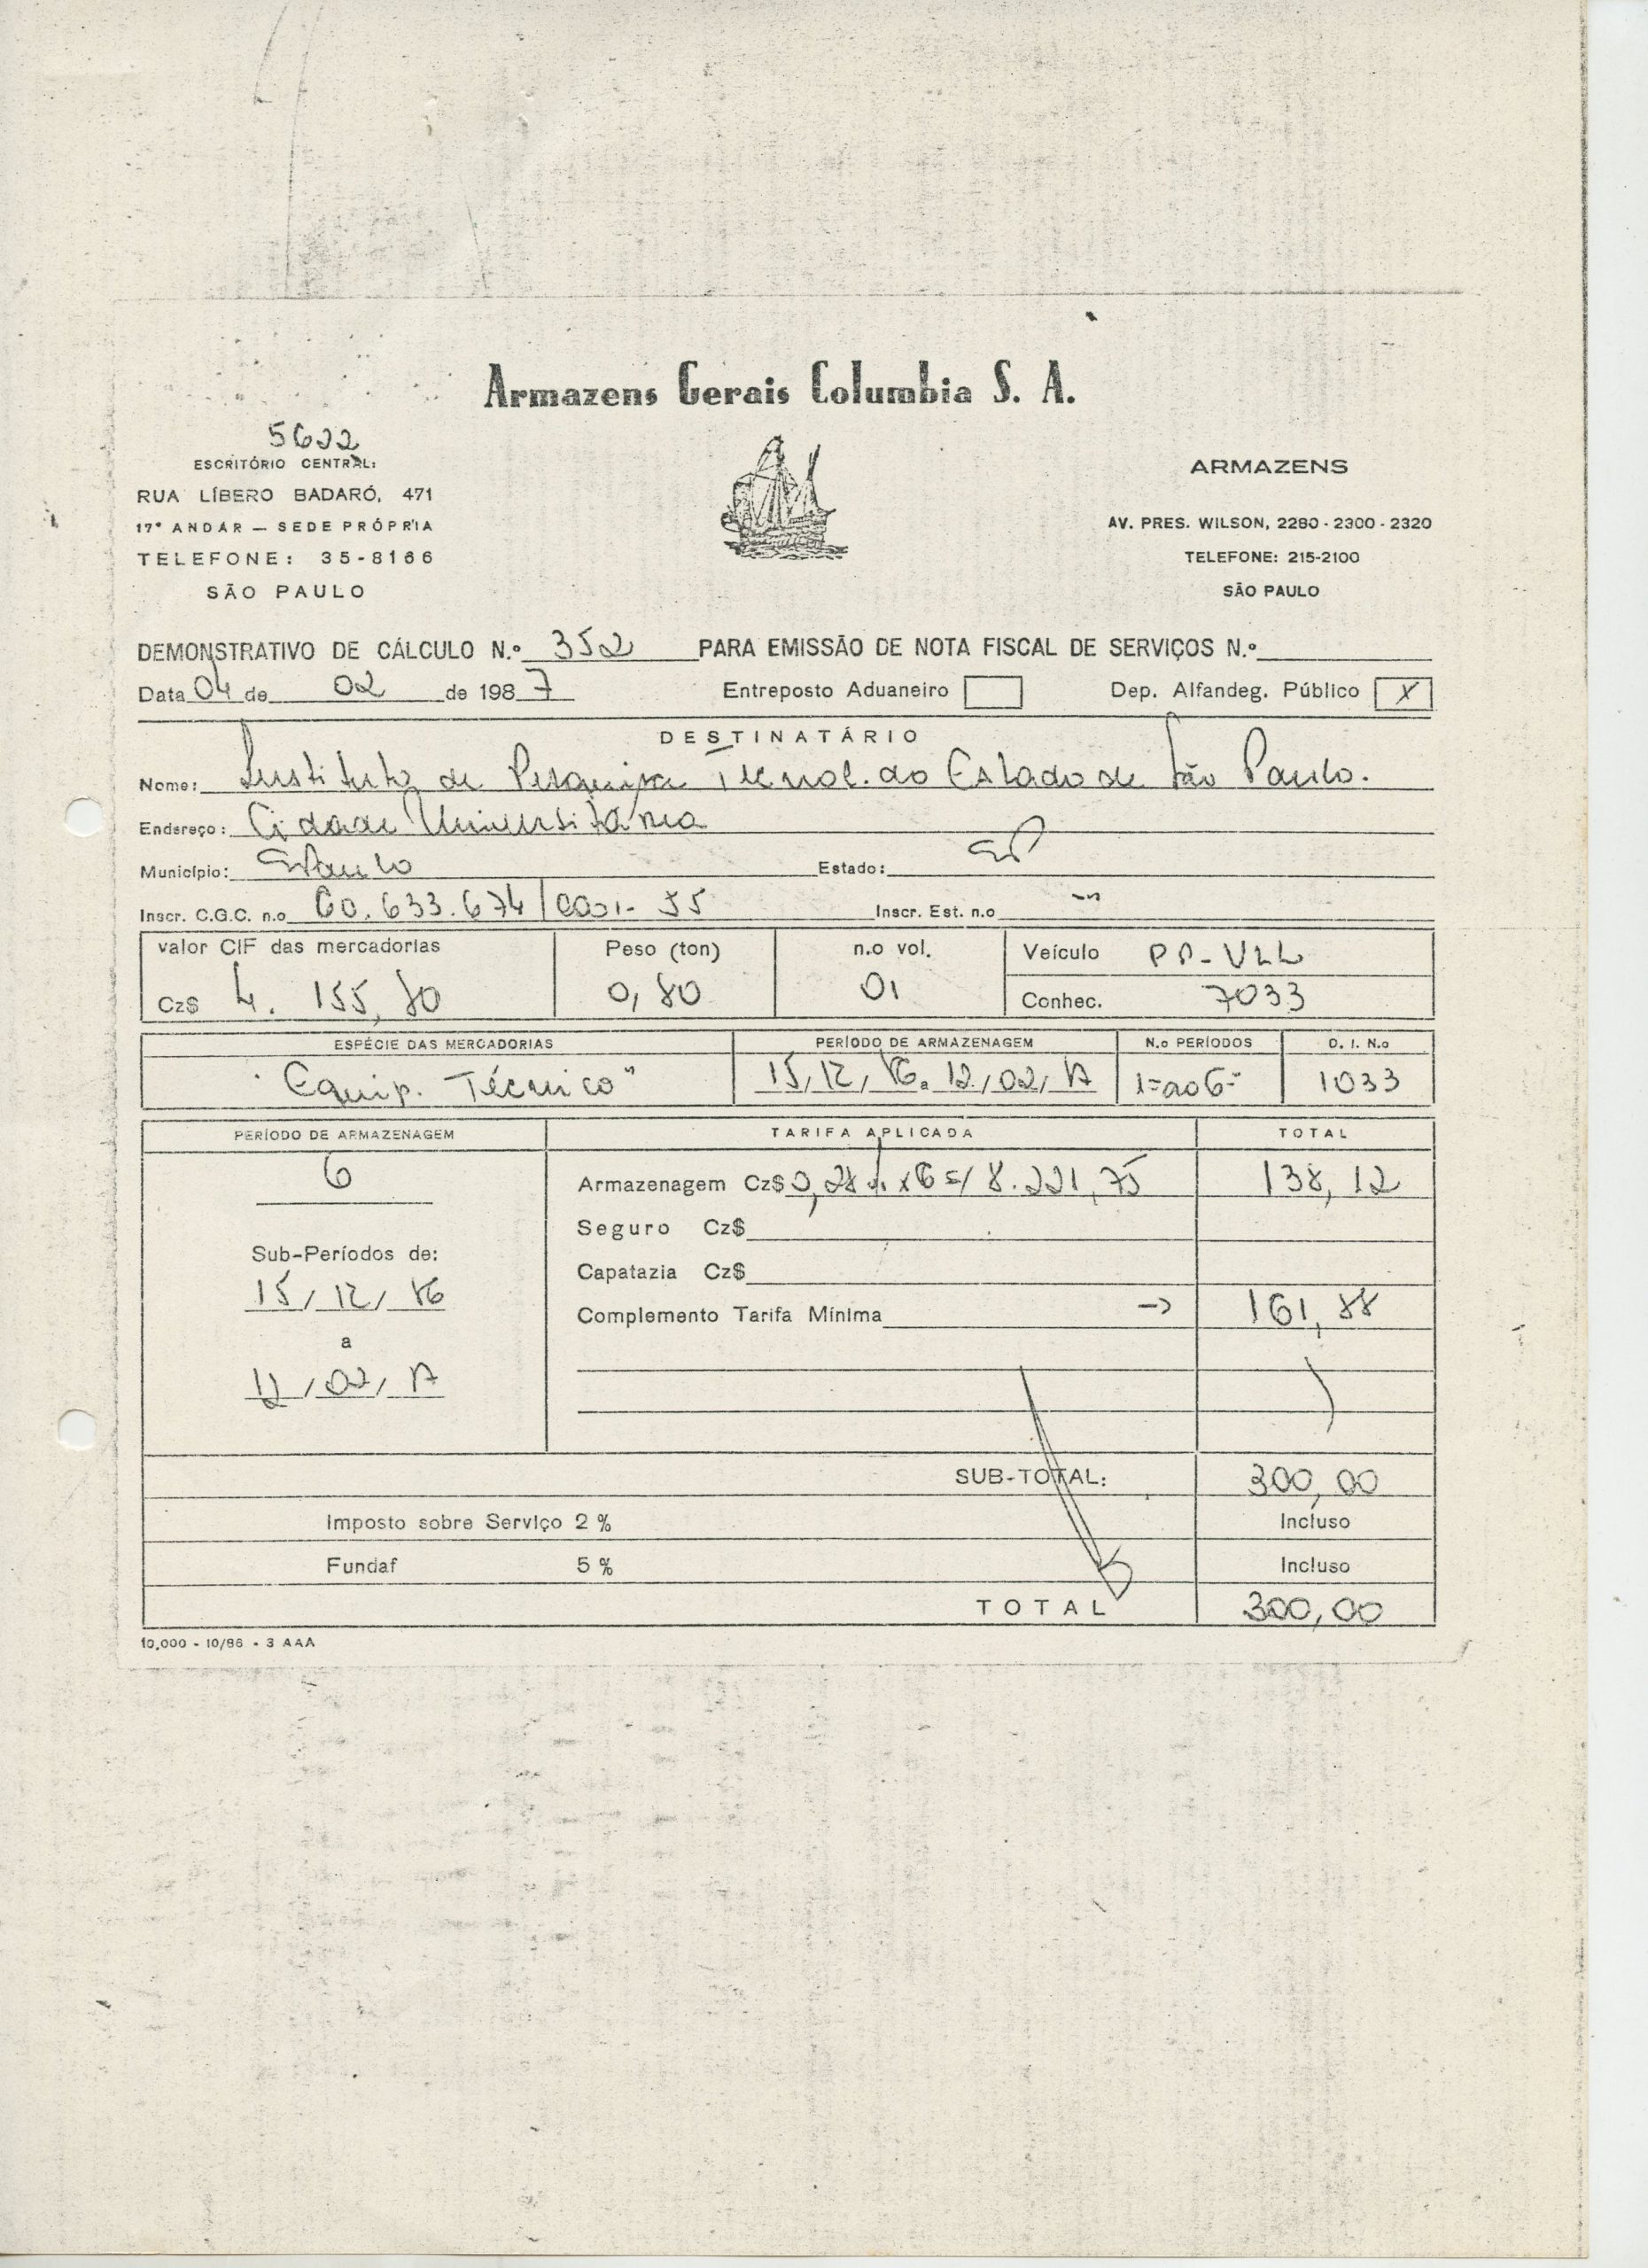 Armazens Gerais Columbia S. A.
5622
ESCRITÓRIO CENTRAL:
RUA LÍBERO BADARÓ, 471
17º ANDAR — SEDE PRÓPRIA
TELEFONE: 35-8166
SÃO PAULO
ARMAZENS
AV. PRES. WILSON, 2280 - 2300 - 2320
TELEFONE: 215-2100
SÃO PAULO
DEMONSTRATIVO DE CÁLCULO N.º 352 PARA EMISSÃO DE NOTA FISCAL DE SERVIÇOS N.º
Data 04 de 02 de 1987 Entreposto Aduaneiro Dep. Alfandeg. Público X
DESTINATÁRIO
Nome: Instituto de Pesquisa Tecnol. do Estado de São Paulo.
Endereço: Cidade Universitária
Município: SPaulo Estado: SP
Inscr. C.G.C. n.o 60.633.674/0001-55 Inscr. Est. n.o
valor CIF das mercadorias Peso (ton) n.o vol. Veículo
Cz$ 4. 155,80 0,80 01 Conhec. 7033
ESPÉCIE DAS MERCADORIAS PERÍODO DE ARMAZENAGEM N.o PERÍODOS D. I. N.o
"Equip. Técnico" 15/12/86 a 12/02/87 1º ao 6º 1033
PERÍODO DE ARMAZENAGEM TARIFA APLICADA TOTAL
6 Armazenagem Cz$ 0,28% x6 s/ 8.221,75 138,12
Seguro Cz$
Sub-Períodos de: Capatazia Cz$
15/12/86 Complemento Tarifa Mínima → 161,88
a
12/02/87
SUB-TOTAL: 300,00
Imposto sobre Serviço 2 % Incluso
Fundaf 5 % Incluso
TOTAL 300,00
10,000 - 10/86 - 3 AAA